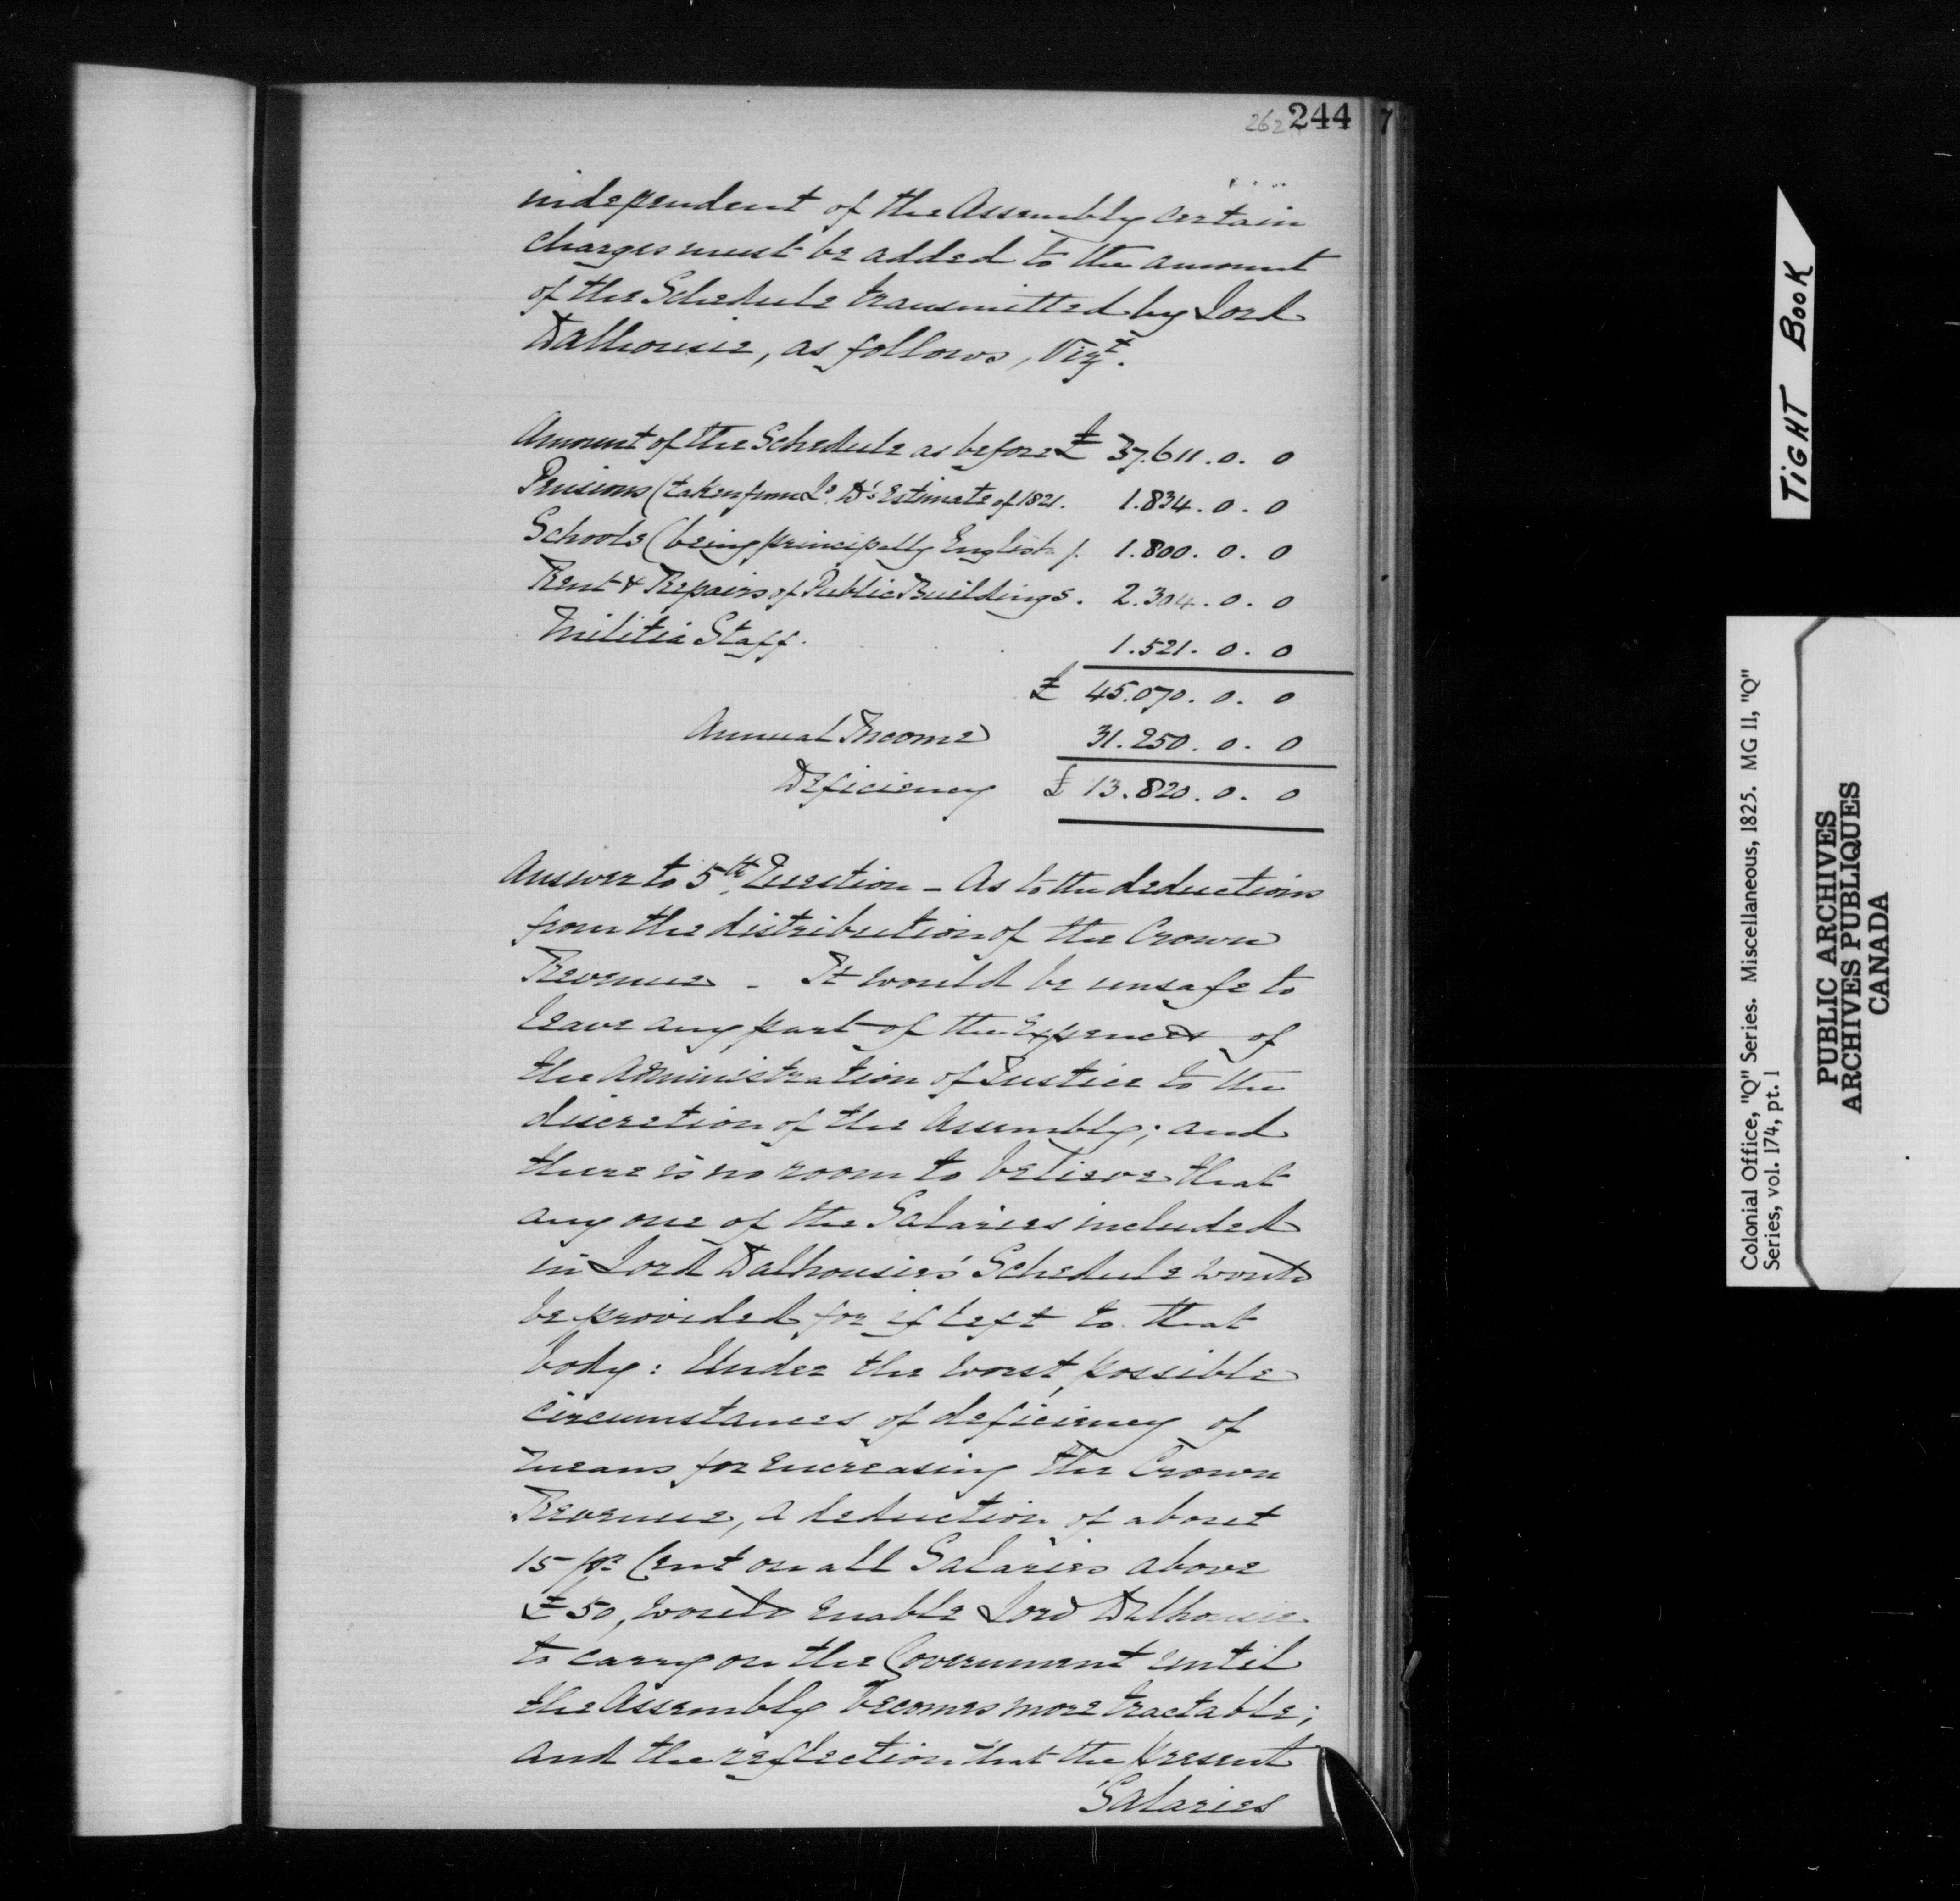 262 244 7
independent of the Assembly certain
charges must be added to the amount
of the Schedule transmitted by Lord
Dalhousie, as follows, Vizt.
Amount of the Schedule as before £ 37.611.0.0
Pensions (taken from Ld. D's Estimate of 1821. 1.834.0.0
Schools (being principally English). 1.800.0.0
Rent & Repairs of Public Buildings. 2.304.0.0
Militia Staff. 1.521.0.0
£ 45.070.0.0
Annual Income 31.250.0.0
Deficiency £ 13.820.0.0
Answer to 5th Question - As to the deductions
from the distribution of the Crown
Revenue - It would be unsafe to
leave any part of the Expences of
the Administration of Justice to the
discretion of the Assembly; and
there is no room to believe that
any one of the Salaries included
in Lord Dalhousie's Schedule would
be provided for if left to that
body: Under the worst possible
circumstances of deficiency of
means for encreasing the Crown
Revenue, a deduction of about
15 pr Cent on all Salaries above
£50, would enable Lord Dalhousie
to carry on the Government until
the Assembly becomes more tractable;
and the reflection that the present
Salaries
TIGHT BOOK
Colonial Office, "Q" Series. Miscellaneous, 1825. MG 11, "Q"
Series, vol. 174, pt. 1
PUBLIC ARCHIVES
ARCHIVES PUBLIQUES
CANADA